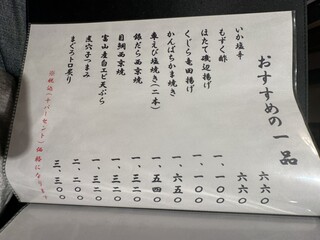 おすすめの一品
いか塩辛 六六〇
もずく酢 六六〇
ほたて磯辺揚げ 一、一〇〇
くじら竜田揚げ 一、一〇〇
かんぱちかま焼き 一、六五〇
車えび塩焼き(二本) 一、五四〇
銀だら西京焼 一、三二〇
目鯛西京焼 一、三二〇
富山産白エビ天ぷら 一、三二〇
煮穴子つまみ 二、二〇〇
まぐろトロ炙り 三、三〇〇
※税込(十パーセント)価格になります